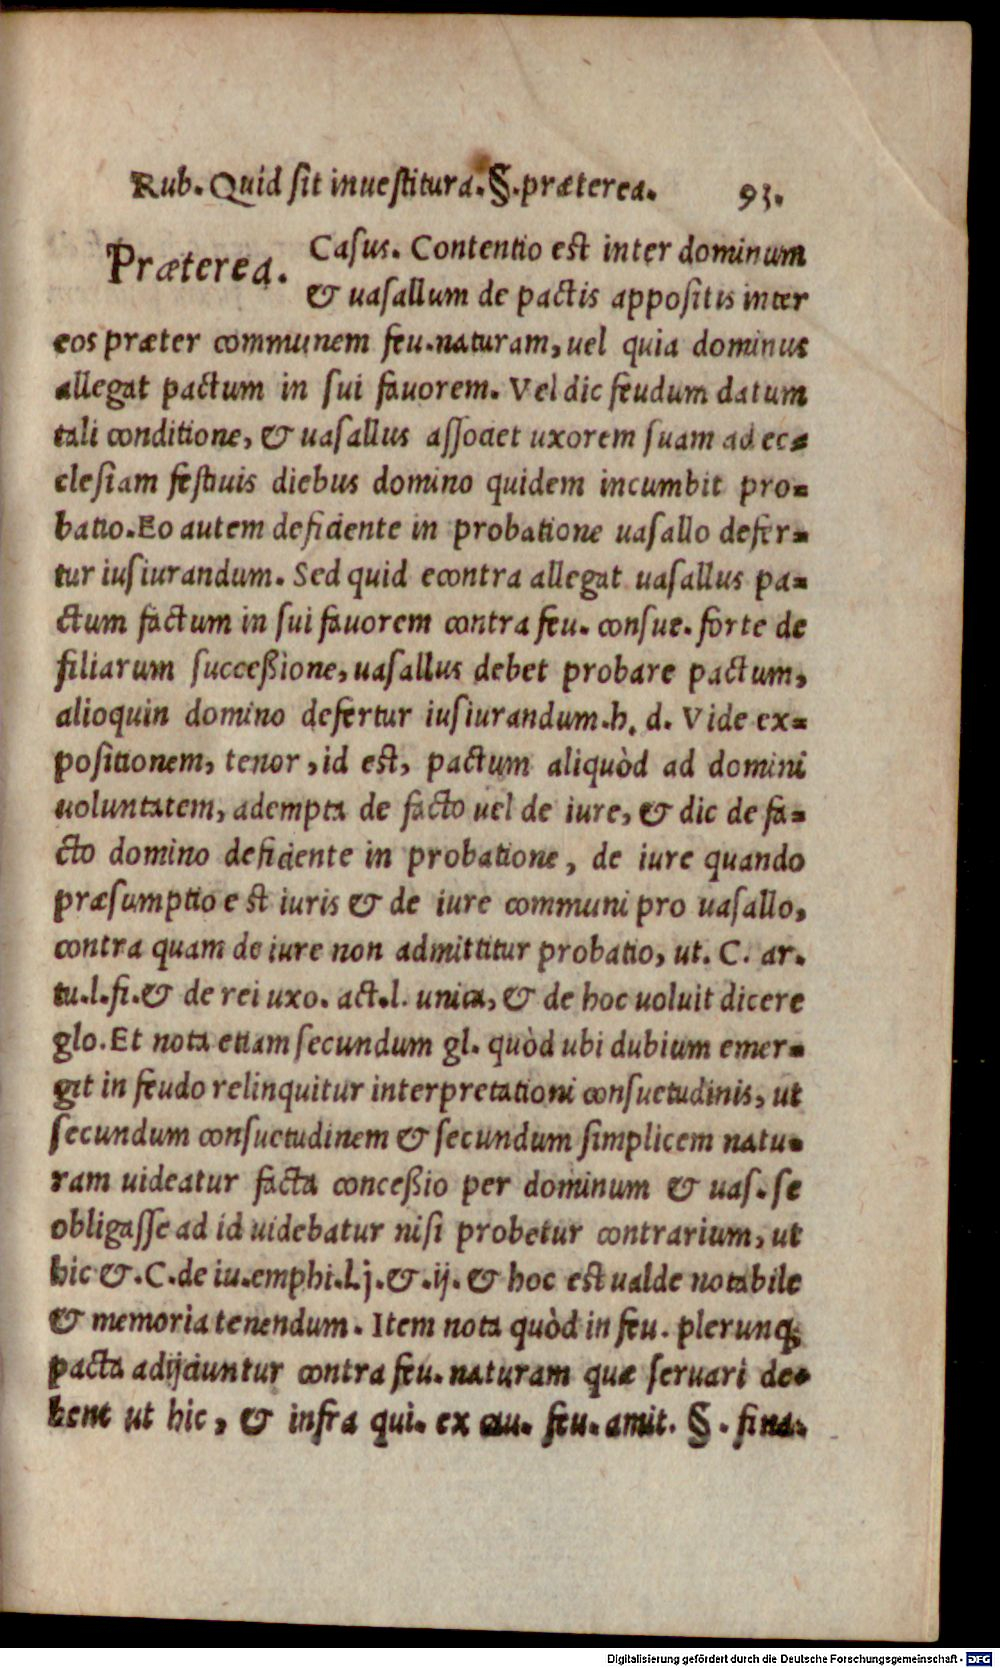 Rub. Quid sit inuestitura. §. præterea. 93.
Præterea. Casus. Contentio est inter dominum
& uasallum de pactis appositis inter
eos præter communem feu. naturam, uel quia dominus
allegat pactum in sui fauorem. Vel dic feudum datum
tali conditione, & uasallus assotiet uxorem suam ad ec-
clesiam festiuis diebus domino quidem incumbit pro-
batio. Eo autem deficiente in probatione uasallo defer-
tur iusiurandum. Sed quid econtra allegat uasallus pa-
ctum factum in sui fauorem contra feu. consue. forte de
filiarum succeßione, uasallus debet probare pactum,
alioquin domino defertur iusiurandum. h. d. Vide ex-
positionem, tenor, id est, pactum aliquòd ad domini
uoluntatem, adempta de facto uel de iure, & dic de fa-
cto domino deficiente in probatione, de iure quando
præsumptio est iuris & de iure communi pro uasallo,
contra quam de iure non admittitur probatio, ut. C. ar.
tu. l. fi. & de rei uxo. act. l. unica, & de hoc uoluit dicere
glo. Et nota etiam secundum gl. quòd ubi dubium emer-
git in feudo relinquitur interpretationi consuetudinis, ut
secundum consuetudinem & secundum simplicem natu-
ram uideatur facta conceßio per dominum & uas. se
obligasse ad id uidebatur nisi probetur contrarium, ut
hic &. C. de iu. emphi. l. j. &. ij. & hoc est ualde notabile
& memoria tenendum. Item nota quòd in feu. plerunq;
pacta adijciuntur contra feu. naturam quæ seruari de-
bent ut hic, & infra qui. ex cau. feu. amit. §. fina.
Digitalisierung gefördert durch die Deutsche Forschungsgemeinschaft - DFG